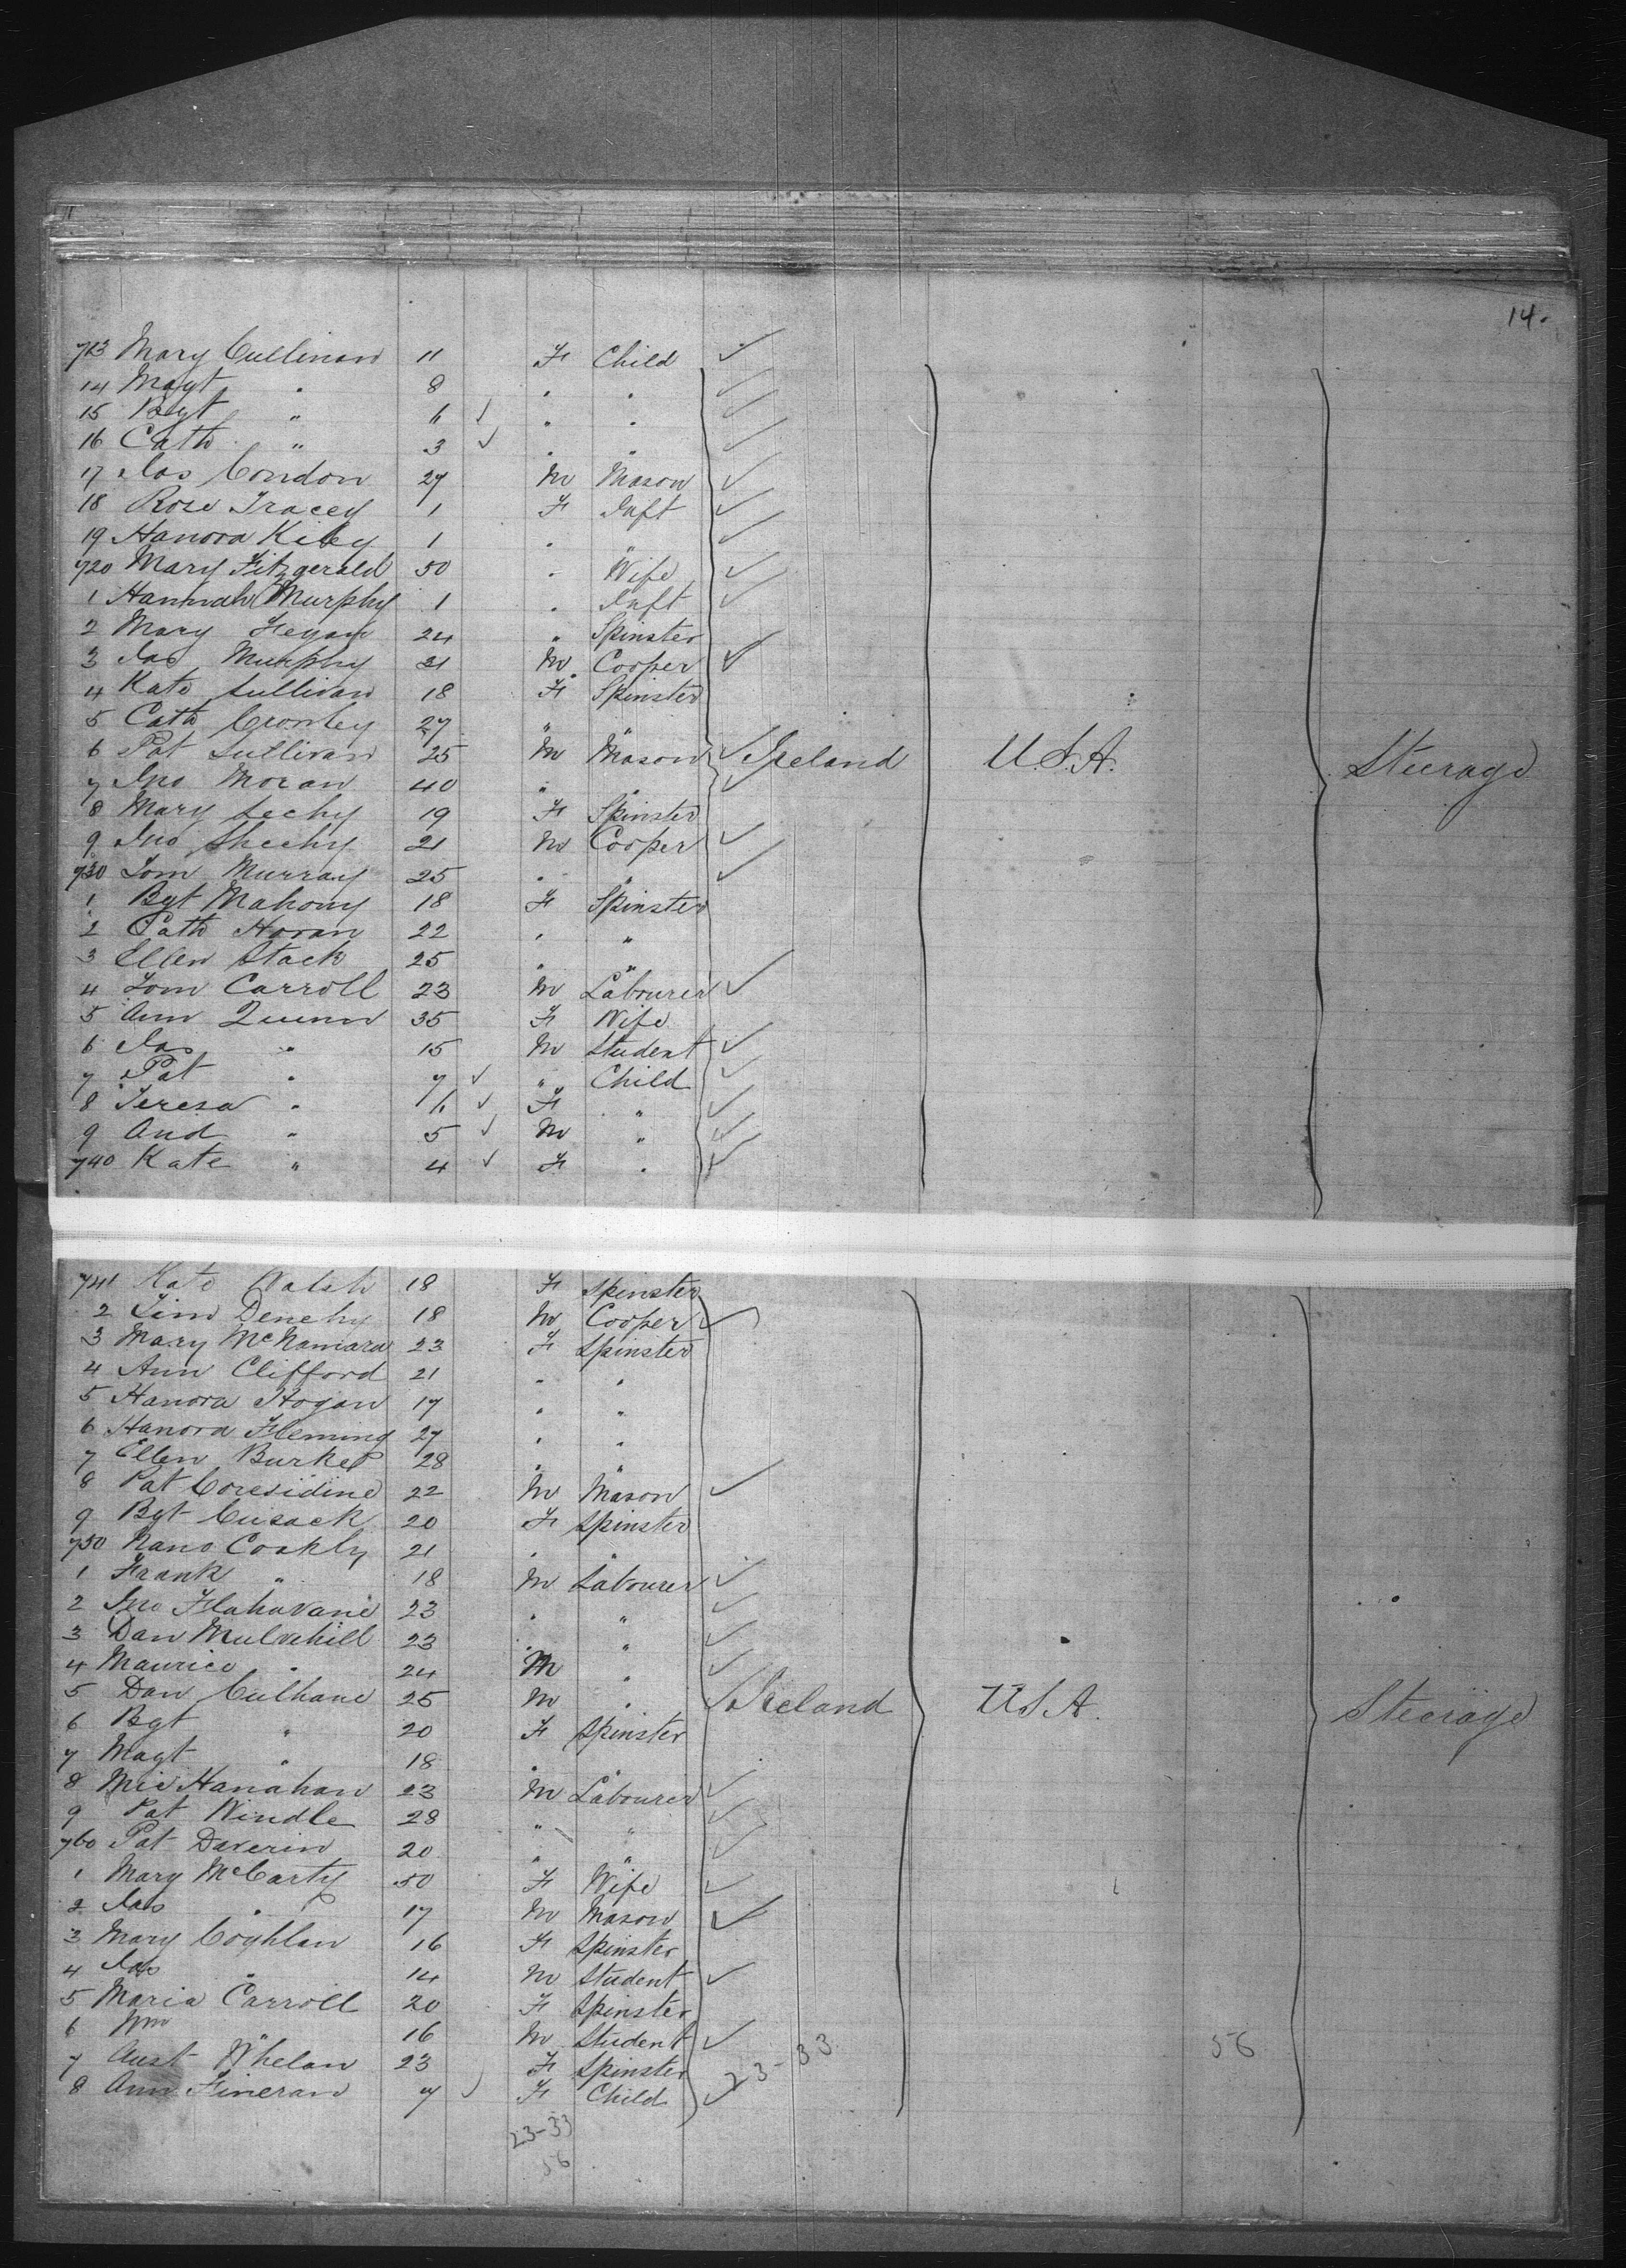 14.
713 Mary Cullinan 11 F Child ✓
14 Magt " 8 " " ✓
15 Bgt " 6 ✓ " " ✓
16 Cath " 3 ✓ " " ✓
17 Jas Condon 27 M Mason ✓
18 Rose Tracey 1 F Inft ✓
19 Hanora Kiley 1 " " ✓
720 Mary Fitzgerald 50 " Wife ✓
1 Hannah Murphy 1 " Inft ✓
2 Mary Fegan 24 " Spinster
3 Jas Murphy 21 M Cooper ✓
4 Kate Sullivan 18 F Spinster
5 Cath Cronley 27 " "
6 Pat Sullivan 25 M Mason ✓ Ireland U.S.A. Steerage
7 Jno Moran 40 " " ✓
8 Mary Sechy 19 F Spinster
9 Jno Sheehy 21 M Cooper ✓
730 Tom Murray 25 " " ✓
1 Bgt Mahony 18 F Spinster
2 Cath Horan 22 " "
3 Ellen Stack 25 " "
4 Tom Carroll 23 M Labourer ✓
5 Ann Quinn 35 F Wife
6 Jas " 15 M Student ✓
7 Pat " 7 ✓ " Child ✓
8 Teresa " 6 ✓ F " ✓
9 And " 5 ✓ M " ✓
740 Kate " 4 ✓ F " ✓
741 Kate Walsh 18 F Spinster
2 Tim Denehy 18 M Cooper ✓
3 Mary McNamara 23 F Spinster
4 Ann Clifford 21 " "
5 Hanora Hogan 17 " "
6 Hanora Fleming 27 " "
7 Ellen Burke 28 " "
8 Pat Coresidine 22 M Mason ✓
9 Bgt Cusack 20 F Spinster
750 Nano Coakly 21 " "
1 Frank " 18 M Labourer ✓
2 Jno Flahavane 23 " " ✓
3 Dan Mulvehill 23 " " ✓
4 Maurice " 24 M " ✓
5 Dan Culhane 25 M " ✓ Ireland U.S.A. Steerage
6 Bgt " 20 F Spinster
7 Magt " 18 " "
8 Mic Hanahan 23 M Labourer ✓
9 Pat Windle 28 " " ✓
760 Pat Daverin 20 " " ✓
1 Mary McCarty 50 F Wife ✓
2 Jas " 17 M Mason ✓
3 Mary Coghlan 16 F Spinster
4 Jas " 14 M Student ✓
5 Maria Carroll 20 F Spinster
6 Wm " 16 M Student ✓
7 Aust Whelan 23 F Spinster 23-33 56
8 Ann Fineran 7 ✓ F Child ✓
23-33
56